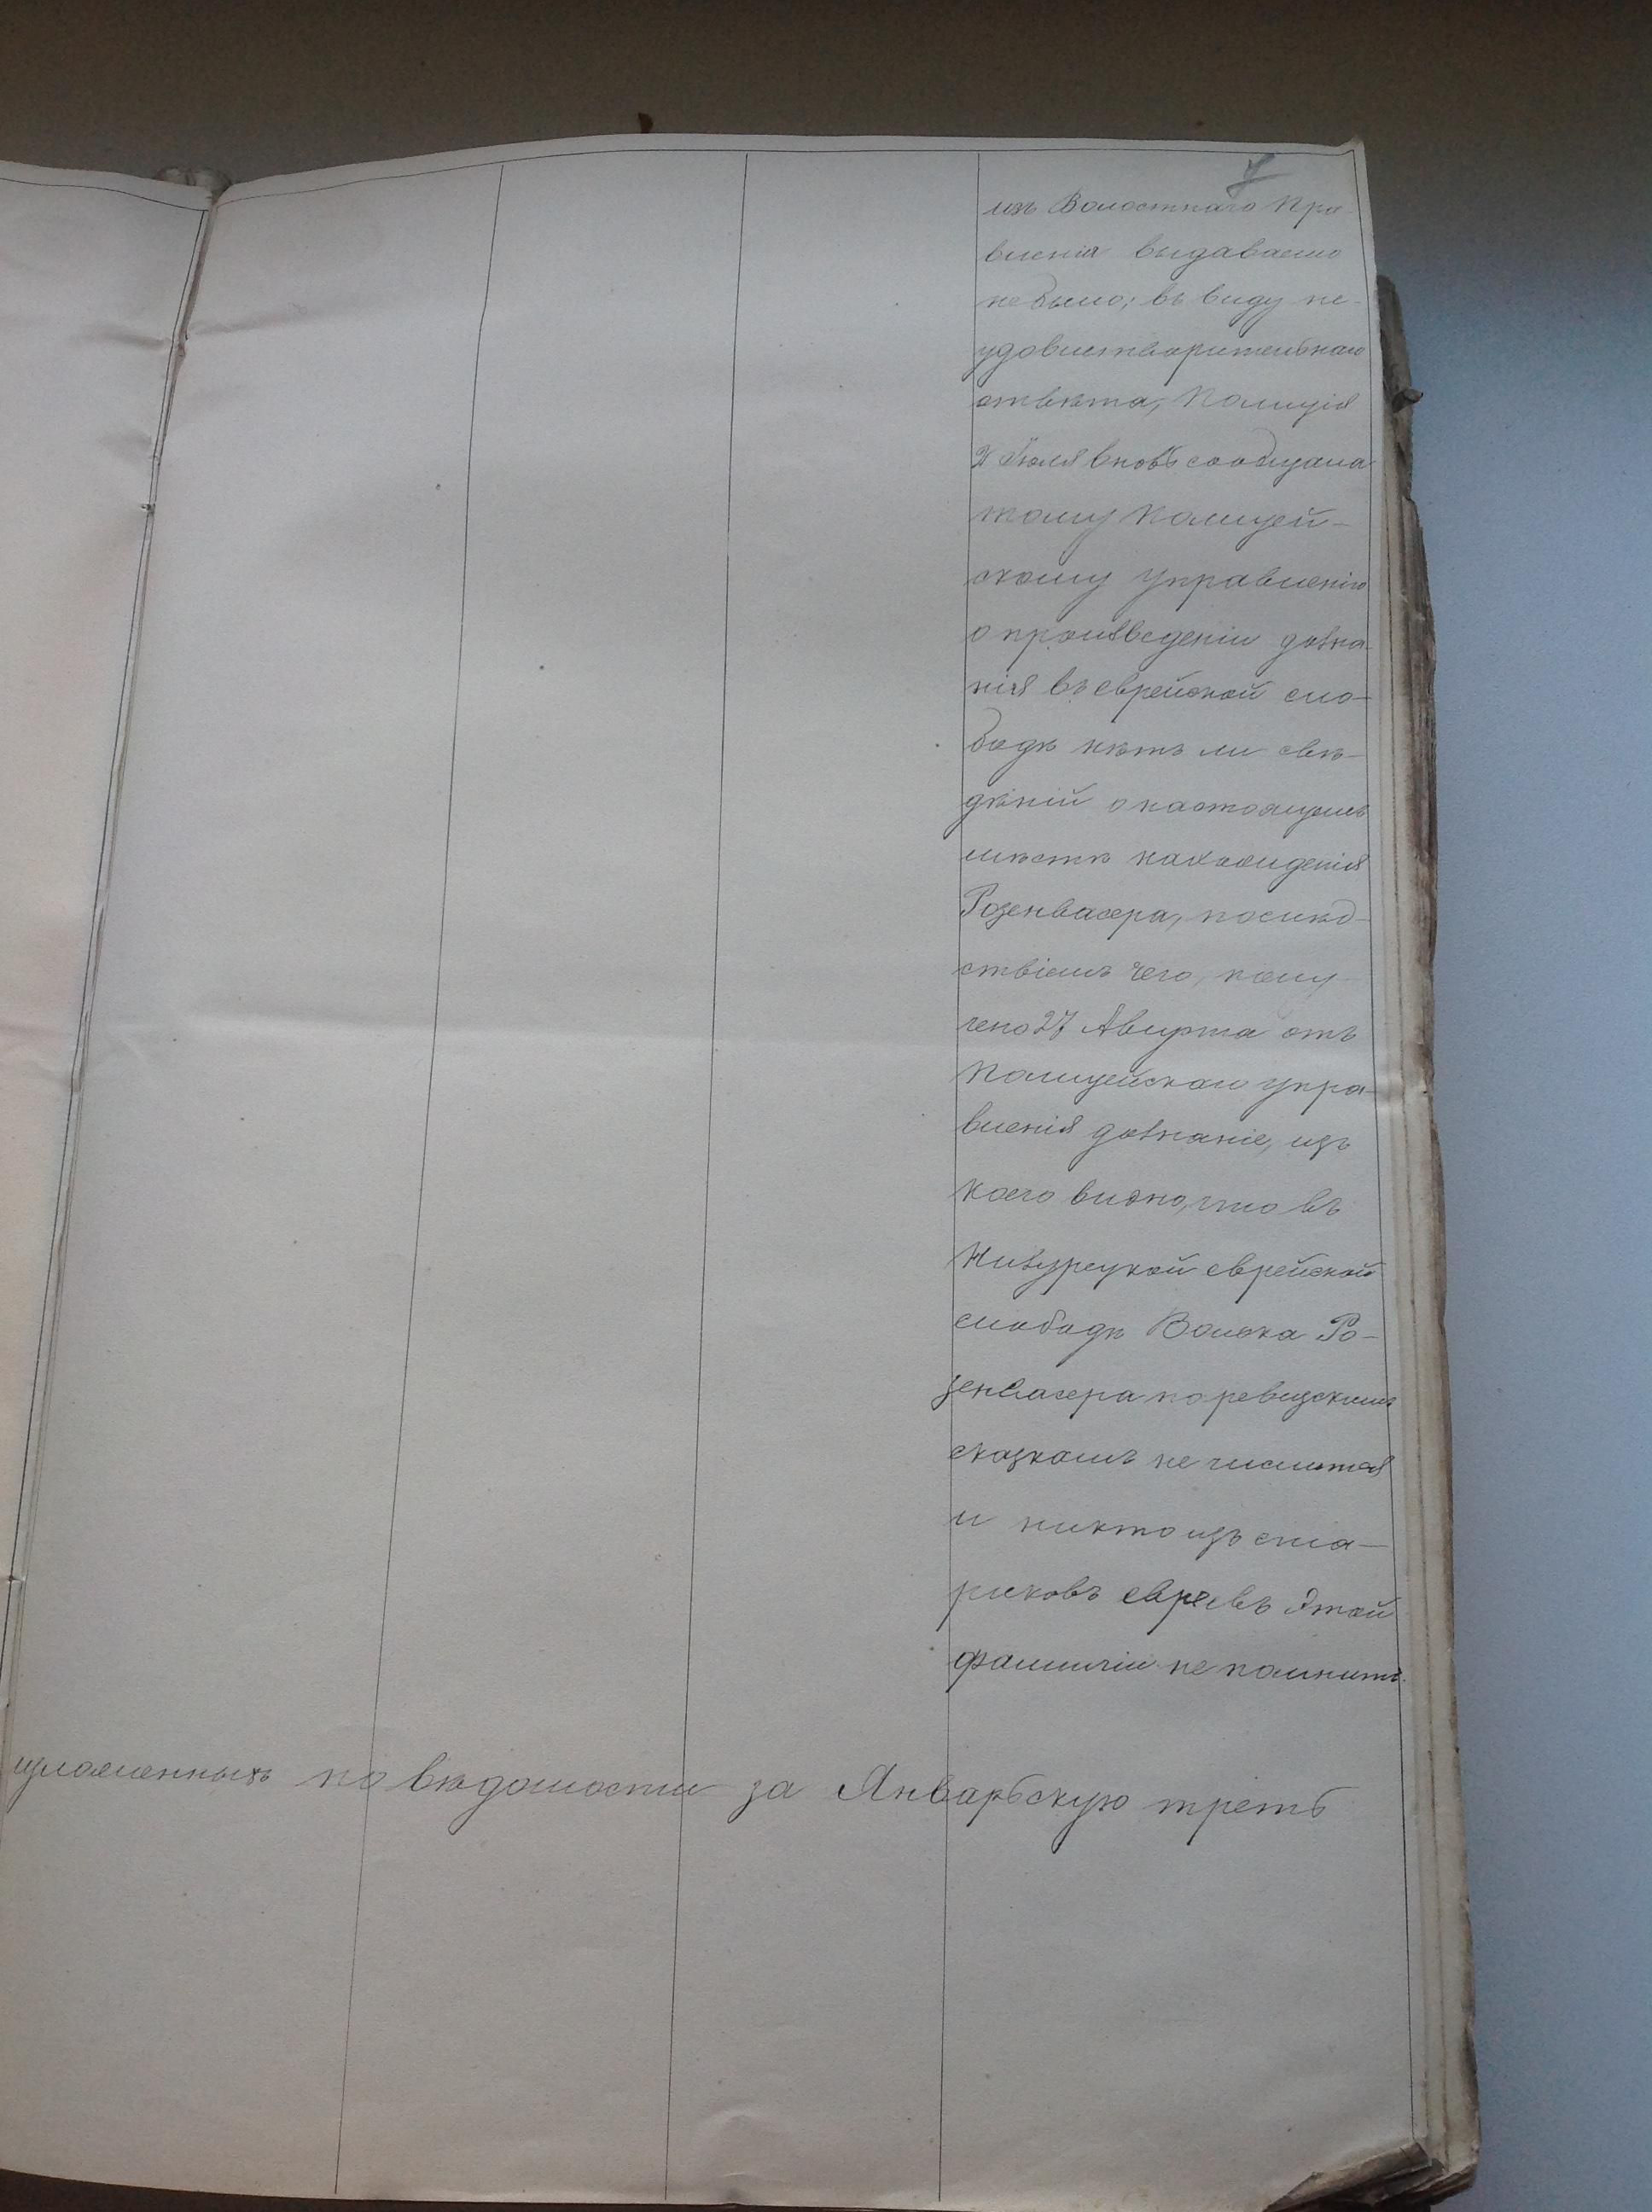 изъ Волостнаго Пра
вленія выдаваемо
не было; въ виду не-
удовлетворительнаго
отвѣта, Полиція
Іюля вновь сообщала
тому Полицей-
скому управленію
о произведеніи дозна-
нія въ еврейской сло-
бодѣ нѣтъ ли свѣ-
дѣній о настоящемъ
мѣстѣ нахожденія
Розенвасера, послѣд-
ствіемъ чего, полу
чено 27 Августа отъ
Полицейскаго упра-
вленія дознаніе, изъ
коего видно, что въ
еврейской
слободѣ Волька Ро-
зенвасера по ревизскимъ
сказкамъ не числится
и никто изъ ста-
риковъ евреевъ этой
фамиліи не помнитъ.
по вѣдомости за Январьскую треть